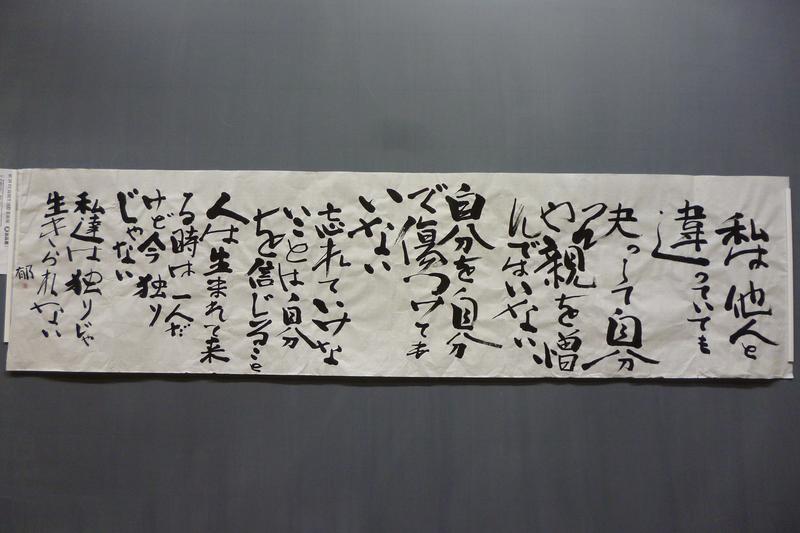 私は他人と
違っていても
決っして自分
や親を憎
んではいない、
自分を自分
で傷つけても
いない
忘れていけな
いことは、自分
を信じること
人は生まれて来
る時は一人だ
けど今独り
じゃない
私達は独りじゃ
生きられない
郁